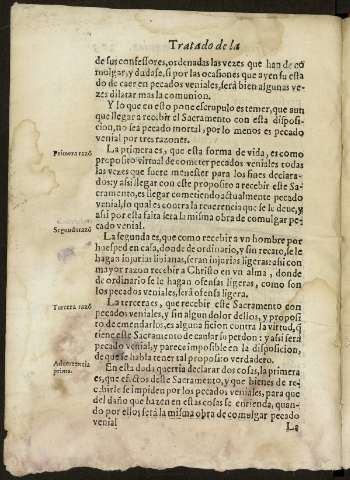 Tratado de la
de sus confessores, ordenadas las vezes que han de co
mulgar, y dudase, si por las ocasiones que ay en su esta
do de caer en pecados veniales, serà bien algunas ve-
zes dilatar mas la comunion.
Y lo que en esto pone escrupulo es temer, que aun
que llegar a recebir el Sacramento con esta disposi-
cion, no sea pecado mortal, por lo menos es pecado
venial por tres razones.
Primera razõ
La primera es, que esta forma de vida, es como
proposito virtual de cometer pecados veniales todas
las vezes que fuere menester para los fines declara-
dos: y assi llegar con este proposito a recebir este Sa-
cramento, es llegar cometiendo actualmente pecado
venial, lo qual es contra la reuerencia que se le deue, y
assi por esta falta serà la misma obra de comulgar pe-
cado venial.
Segunda razõ
La segunda es, que como recebir a vn hombre por
huesped en casa, donde de ordinario, y sin recato, se le
hagan injurias liuianas, seran injurias ligeras: assi con
mayor razon recebir a Christo en vn alma, donde
de ordinario se le hagan ofensas ligeras, como son
los pecados veniales, serà ofensa ligera.
Tercera razõ
La tercera es, que recebir este Sacramento con
pecados veniales, y sin algun dolor dellos, y proposi
to de emendarlos, es alguna ficion contra la virtud, q̃
tiene este Sacramento de causar perdon: y assi serà
pecado venial, y parece imposible en la disposicion,
de que se habla tener tal proposito verdadero.
Aduertencia
prima.
En esta duda querria declarar dos cosas, la primera
es, que efectos deste Sacramento, y que bienes de re-
cebirle se impiden por los pecados veniales, para que
del daño que hazen en estas cosas se entienda, quan-
do por ellos serà la misma obra de comulgar pecado
venial
La